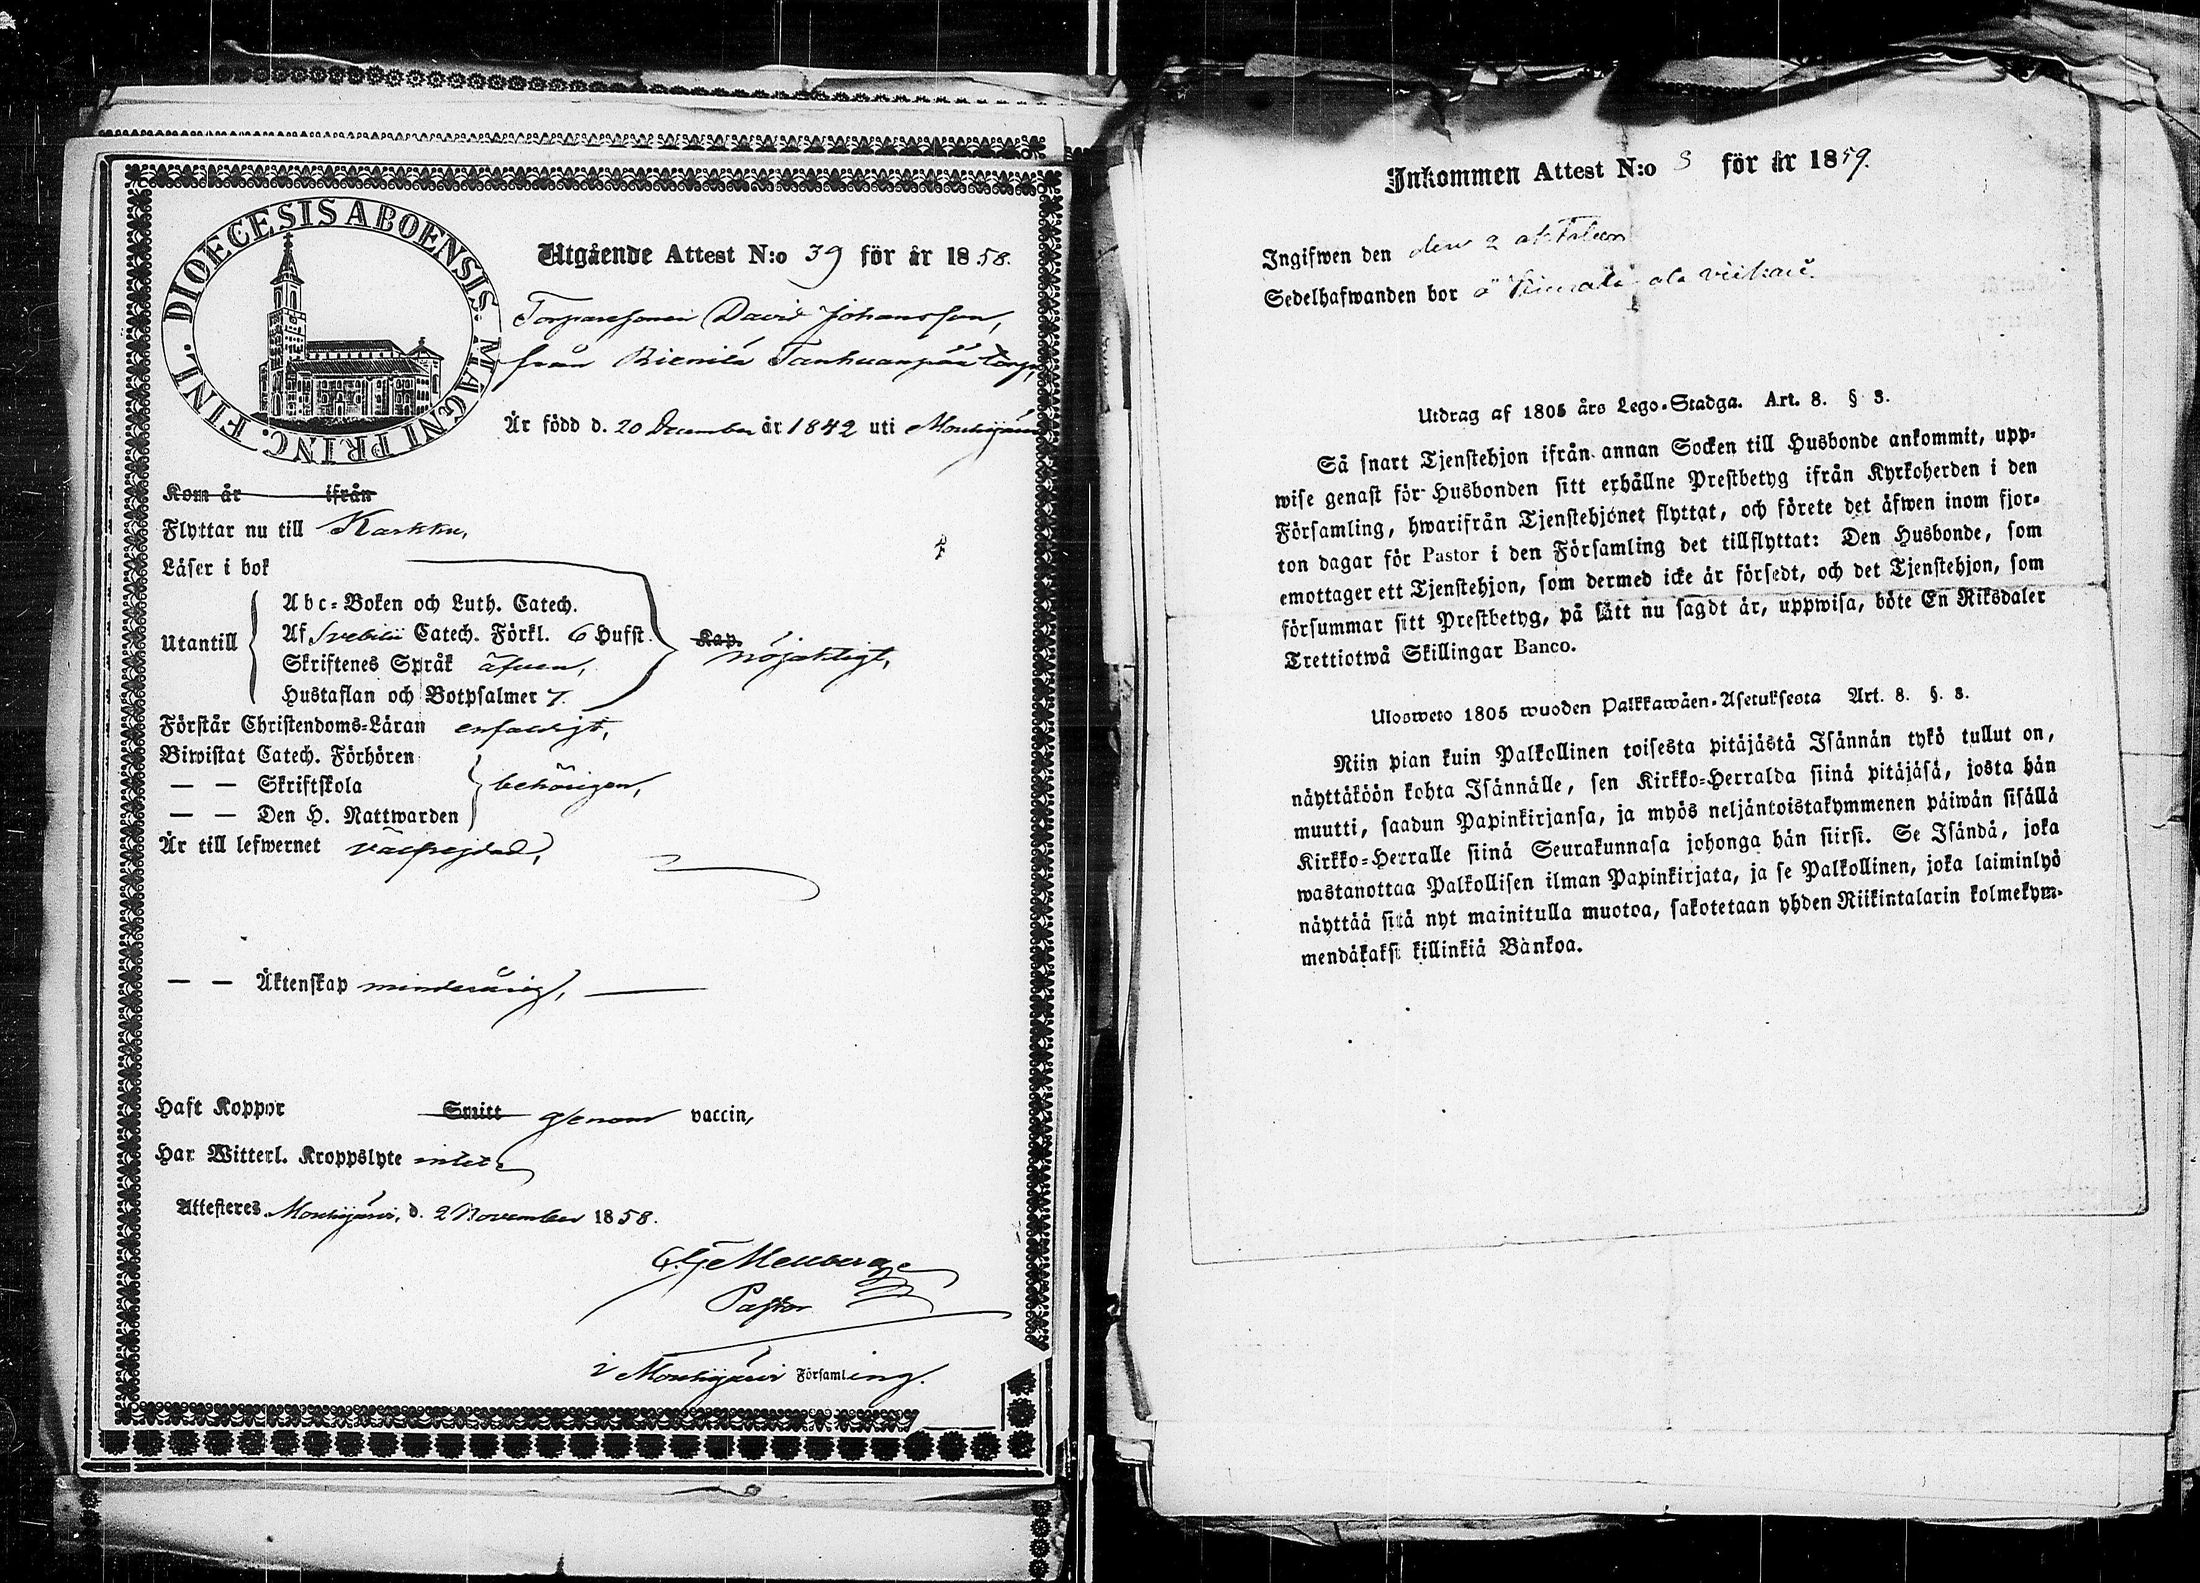 DIOECESIS ABOENSIS. MAGNI PRINC. FINL.
Utgående Attest N:o 39 för år 1858.
Torparesonen David Johansson,
från Tanhuanpää torp,
Är född d. 20 December år 1842 uti Mouhijärvi
Kom år ifrån
Flyttar nu till Karkku,
Läser i bok
Utantill
Abc-Boken och Luth. Catech.
Af Svebilii Catech. Förkl. 6 Hufst.
Skriftenes Språk äfven,
Hustaflan och Botpsalmer 7.
Kap.
nöjaktigt,
Förstår Christendoms-Läran enfaldigt,
Biwistat Catech. Förhören
— — Skriftskola
— — Den H. Nattwarden
behörigen,
Är till lefwernet välfrejdad,
— — Äktenskap minderårig,
Haft Koppor Smitt genom vaccin,
Har Witterl. Kroppslyte intet.
Attesteres Mouhijärvi, d. 2 November 1858.
Mellberg
Pastor
i Mouhijärvi Församling.
Inkommen Attest N:o för år 1859.
Ingifwen den den 2
Sedelhafwanden bor
Utdrag af 1805 års Lego-Stadga. Art. 8. § 3.
Så snart Tjenstehjon ifrån annan Socken till Husbonde ankommit, upp-
wise genast för Husbonden sitt erhållne Prestbetyg ifrån Kyrkoherden i den
Församling, hwarifrån Tjenstehjonet flyttat, och förete det äfwen inom fjor-
ton dagar för Pastor i den Församling det tillflyttat: Den Husbonde, som
emottager ett Tjenstehjon, som dermed icke är försedt, och det Tjenstehjon, som
försummar sitt Prestbetyg, på sätt nu sagdt är, uppwisa, böte En Riksdaler
Trettiotwå Skillingar Banco.
Ulosweto 1805 wuoden Palkkawäen-Asetuksesta Art. 8. §. 3.
Niin pian kuin Palkollinen toisesta pitäjästä Isännän tykö tullut on,
näyttäköön kohta Isännälle, sen Kirkko-Herralda siinä pitäjäsä, josta hän
muutti, saadun Papinkirjansa, ja myös neljäntoistakymmenen päiwän sisällä
Kirkko-Herralle siinä Seurakunnasa johonga hän siirsi. Se Isändä, joka
wastanottaa Palkollisen ilman Papinkirjata, ja se Palkollinen, joka laiminlyö
näyttää sitä nyt mainitulla muotoa, sakotetaan yhden Riikintalarin kolmekym-
mendäkaksi killinkiä Bankoa.